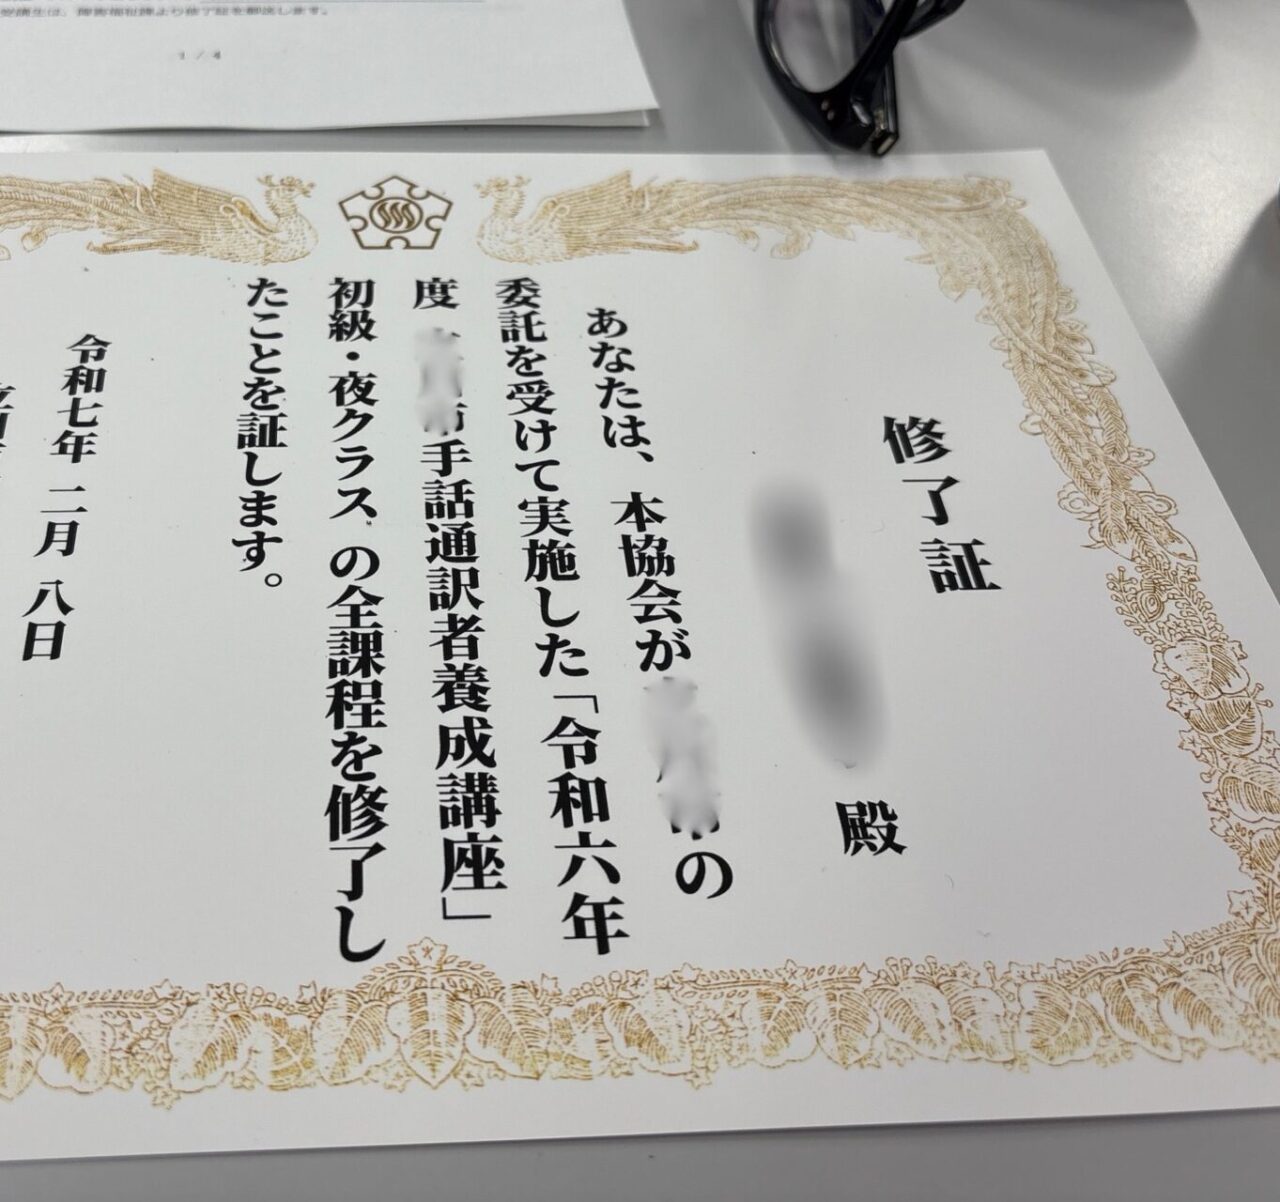 受講生は、障害福祉課より修了証を郵送します。
1 / 4
修了証
殿
あなたは、本協会が
の
委託を受けて実施した「令和六年
度
手話通訳者養成講座」
初級・夜クラス の全課程を修了し
たことを証します。
令和七年 二月 八日